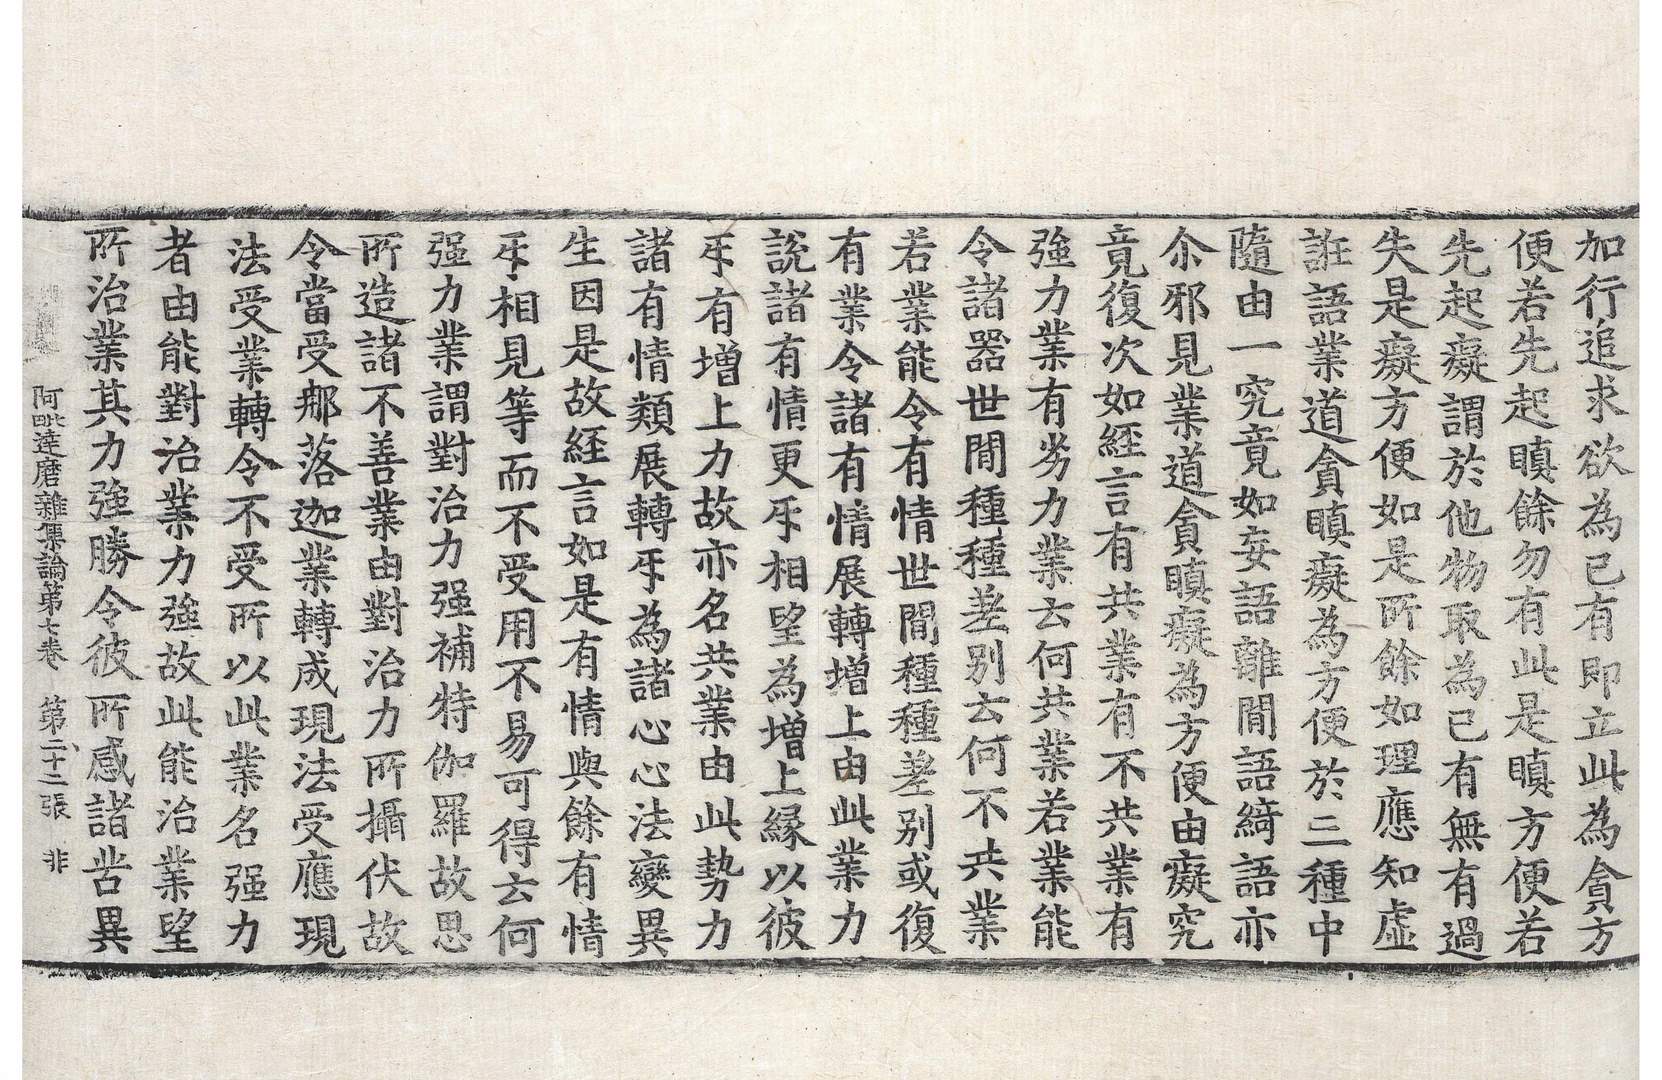 加行追求欲為已有即立此為貪方
便若先起瞋餘勿有此是瞋方便若
先起癡謂於他物取為已有無有過
失是癡方便如是所餘如理應知虛
誑語業道貪瞋癡為方便於三種中
隨由一究竟如妄語離間語綺語亦
尒邪見業道貪瞋癡為方便由癡究
竟復次如經言有共業有不共業有
強力業有劣力業云何共業若業能
令諸器世間種種差別云何不共業
若業能令有情世間種種差別或復
有業令諸有情展轉增上由此業力
說諸有情更㸦相望為增上緣以彼
㸦有增上力故亦名共業由此勢力
諸有情類展轉㸦為諸心心法變異
生因是故経言如是有情與餘有情
㸦相見等而不受用不易可得云何
强力業謂對治力强補特伽羅故思
所造諸不善業由對治力所攝伏故
令當受那落迦業轉成現法受應現
法受業轉令不受所以此業名强力
者由能對治業力強故此能治業望
所治業其力強勝令彼所感諸苦異
阿毗達磨雜集論第七卷 第二十二張 非